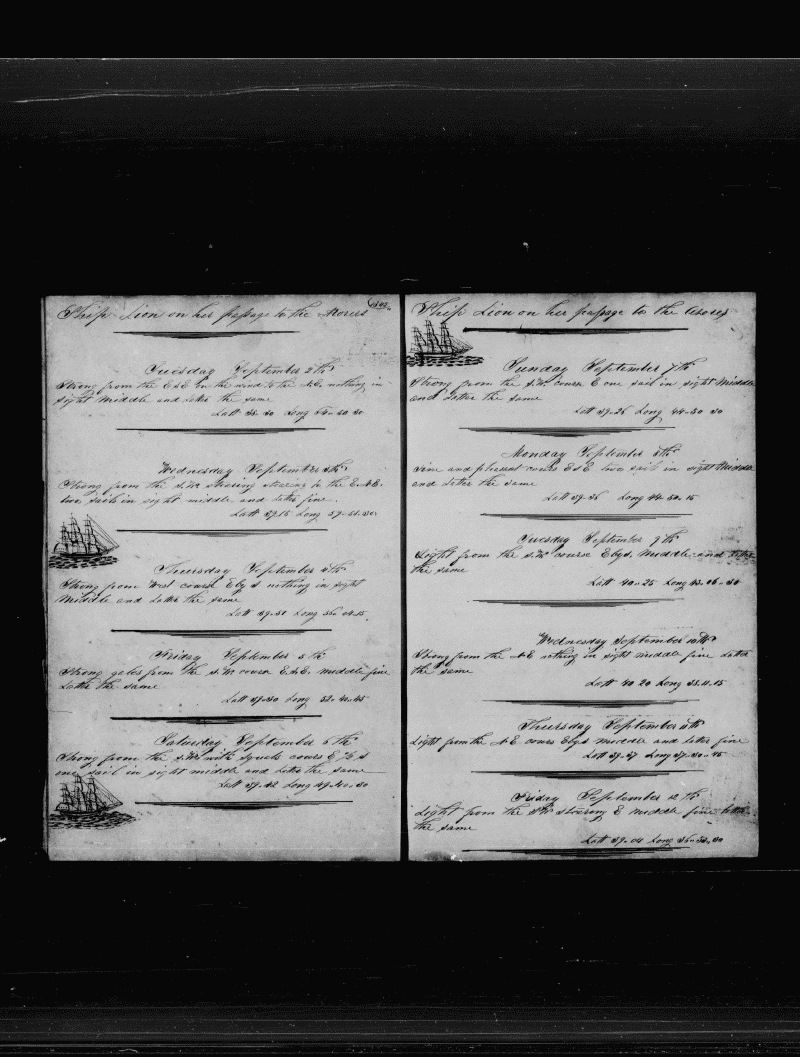 Ship Lion on her passage to the Azores
Tuesday September 2th
Strong from the E & E In the wind to the N.E. nothing in
sight Middle and Latter the same
Latt 38-30 Long 64-50 30
Wednesday September 3th
Strong from the S.W. steering to the E.N.E.
two sails in sight middle and latter fine
Latt 39.15 Long 59-55-30
Thursday September 4th
Strong from West course E by S nothing in sight
Middle and Latter the same
Latt 39-51 Long 04.15
Friday September 5th
Strong gales from the S.W. course E.S.E. middle fine
Latter the same
Latt 39-30 Long 52-41-45
Saturday September 6th
Strong from the S.W. with squals cours E ½ S
one sail in sight middle and latter the same
Latt 39-42 Long 49-40-30
Ship Lion on her passage to the Azores
Sunday September 7th
Strong from the S.W. course E one sail in sight Middle
and Latter the same
Latt 39-26 Long 44-50 30
Monday September 8th
Fine and plesent cours E two sail in sight Middle
and Latter the same
Latt 39-36 Long 44-50-15
Tuesday September 9th
Light from the S.W. course E by S. Middle and latter
the same
Latt 40-25 Long 43-06-30
Wednesday September 10th
Strong from the N.E nothing in sight middle fine Latter
the same
Latt 40 20 Long 38.11.15
Thursday September 11th
Light from the N.E cours E by S Middle and latter fine
Latt 39-37 Long 37-30-45
Friday September 12th
Light from the S.W. steering E Middle fine latter
the same
Latt 39-04 Long 36-30